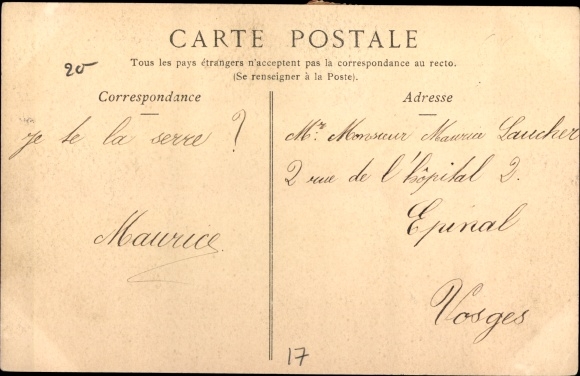 CARTE POSTALE
Tous les pays étrangers n'acceptent pas la correspondance au recto.
(Se renseigner à la Poste).
20
Correspondance
Je te la serre ?
Maurice
Adresse
Mr. Monsieur Maurice Laucher
2 rue de l'hôpital 2.
Epinal
Vosges
17